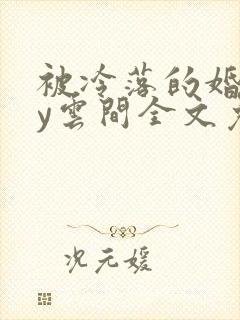 被冷落的婚
y雲間全文
况元媛